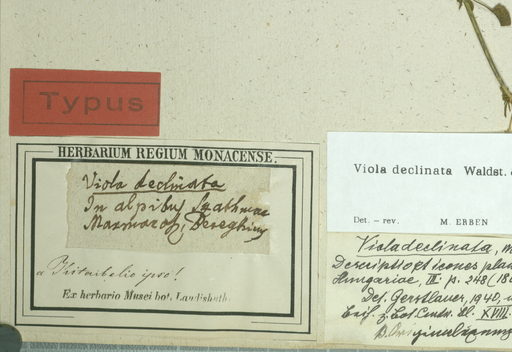 Typus
HERBARIUM REGIUM MONACENSE.
Viola declinata
In alpibus Szathmar
Marmaros, Bereghiens
a Kitaibelio ipso!
Ex herbario Musei bot. Landishuth.
Viola declinata Waldst.
Det. – rev. M. ERBEN
Viola declinata,
Descriptio et icones plan
Hungariae, III. p. 248
Det. Gerstlauer, 1940,
Beih. z. Bot. Centr. Bl. XVIII